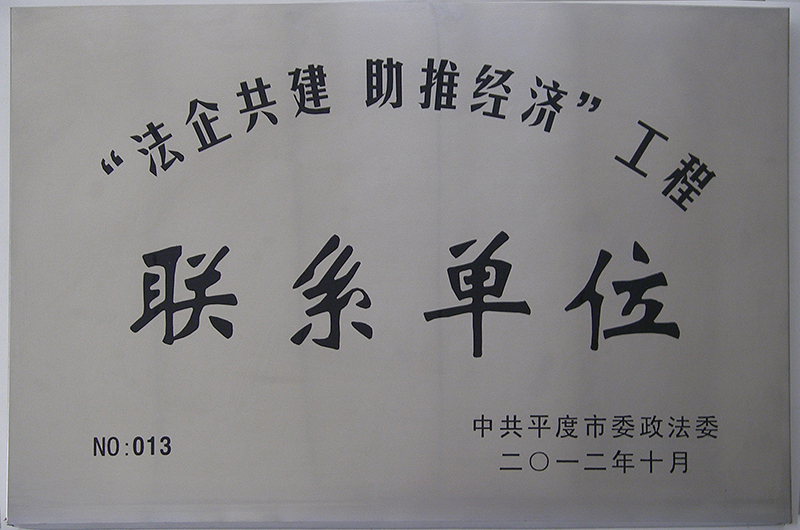 “法企共建 助推经济”工程
联系单位
NO:013
中共平度市委政法委
二〇一二年十月